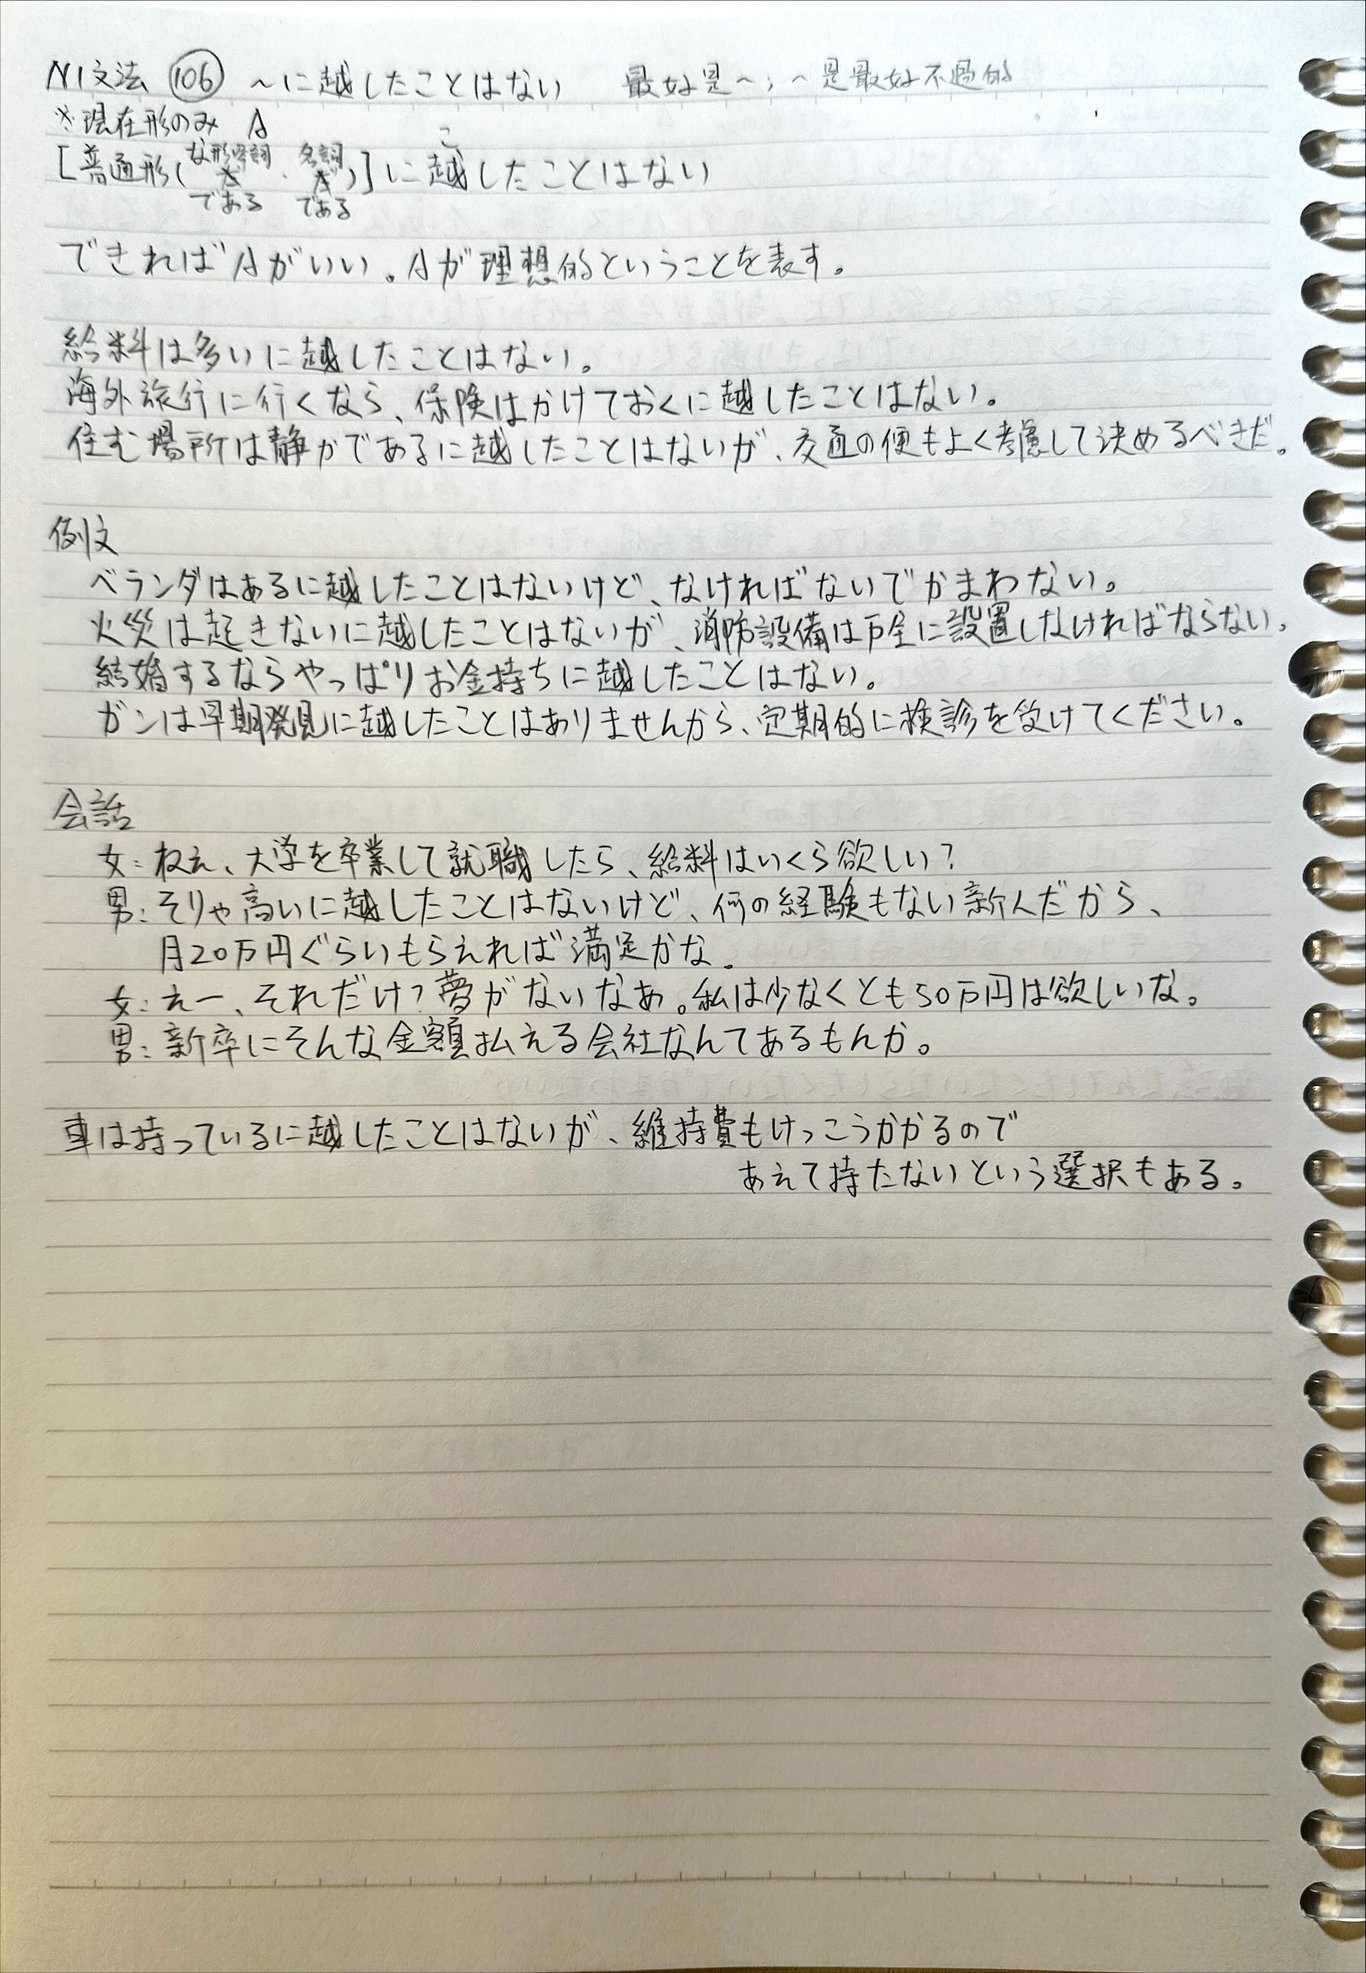 N1文法 106 ～に越したことはない 最好是～；～是最好不過的
※現在形のみ A
[普通形(な形容詞だ・名詞だ)]に越したことはない
である である
こ
できればAがいい。Aが理想的ということを表す。
給料は多いに越したことはない。
海外旅行に行くなら、保険はかけておくに越したことはない。
住む場所は静かであるに越したことはないが、交通の便もよく考慮して決めるべきだ。
例文
ベランダはあるに越したことはないけど、なければないでかまわない。
火災は起きないに越したことはないが、消防設備は万全に設置しなければならない。
結婚するならやっぱりお金持ちに越したことはない。
ガンは早期発見に越したことはありませんから、定期的に検診を受けてください。
会話
女：ねえ、大学を卒業して就職したら、給料はいくら欲しい？
男：そりゃ高いに越したことはないけど、何の経験もない新人だから、
月20万円ぐらいもらえれば満足かな。
女：えー、それだけ？夢がないなあ。私は少なくとも50万円は欲しいな。
男：新卒にそんな金額払える会社なんてあるもんか。
車は持っているに越したことはないが、維持費もけっこうかかるので
あえて持たないという選択もある。